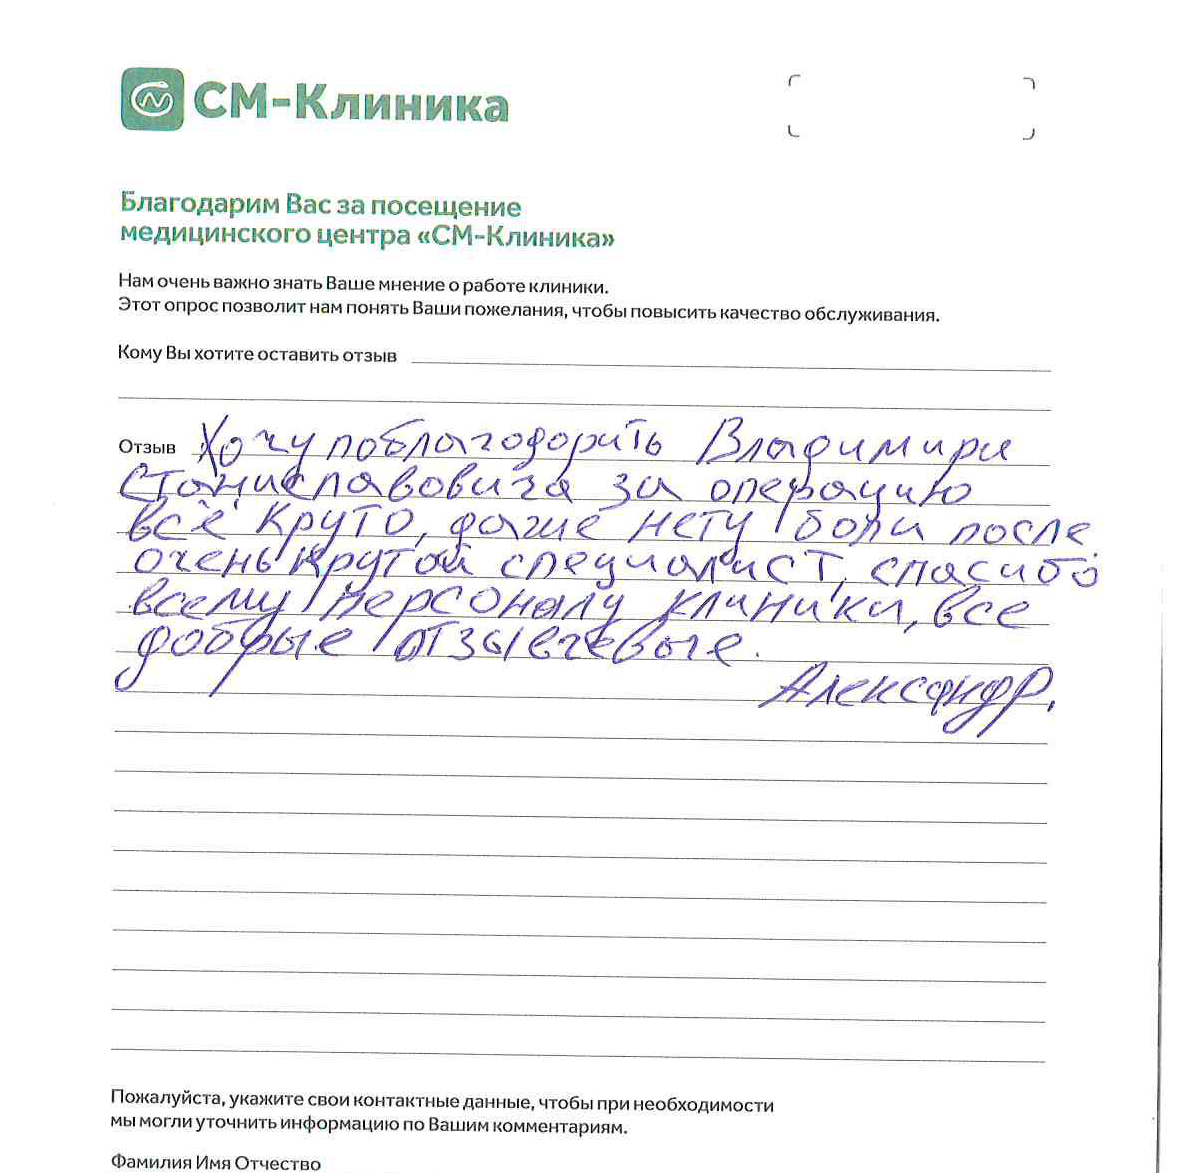 СМ-Клиника
Благодарим Вас за посещение
медицинского центра «СМ-Клиника»
Нам очень важно знать Ваше мнение о работе клиники.
Этот опрос позволит нам понять Ваши пожелания, чтобы повысить качество обслуживания.
Кому Вы хотите оставить отзыв
Отзыв Хочу поблагодорить Владимири
Станиславовича за операцию
всё круто, даже нету боли после.
очень крутой специалист, спасибо
всему персоналу клиники, все
добрые отзывчевые.
Александр.
Пожалуйста, укажите свои контактные данные, чтобы при необходимости
мы могли уточнить информацию по Вашим комментариям.
Фамилия Имя Отчество